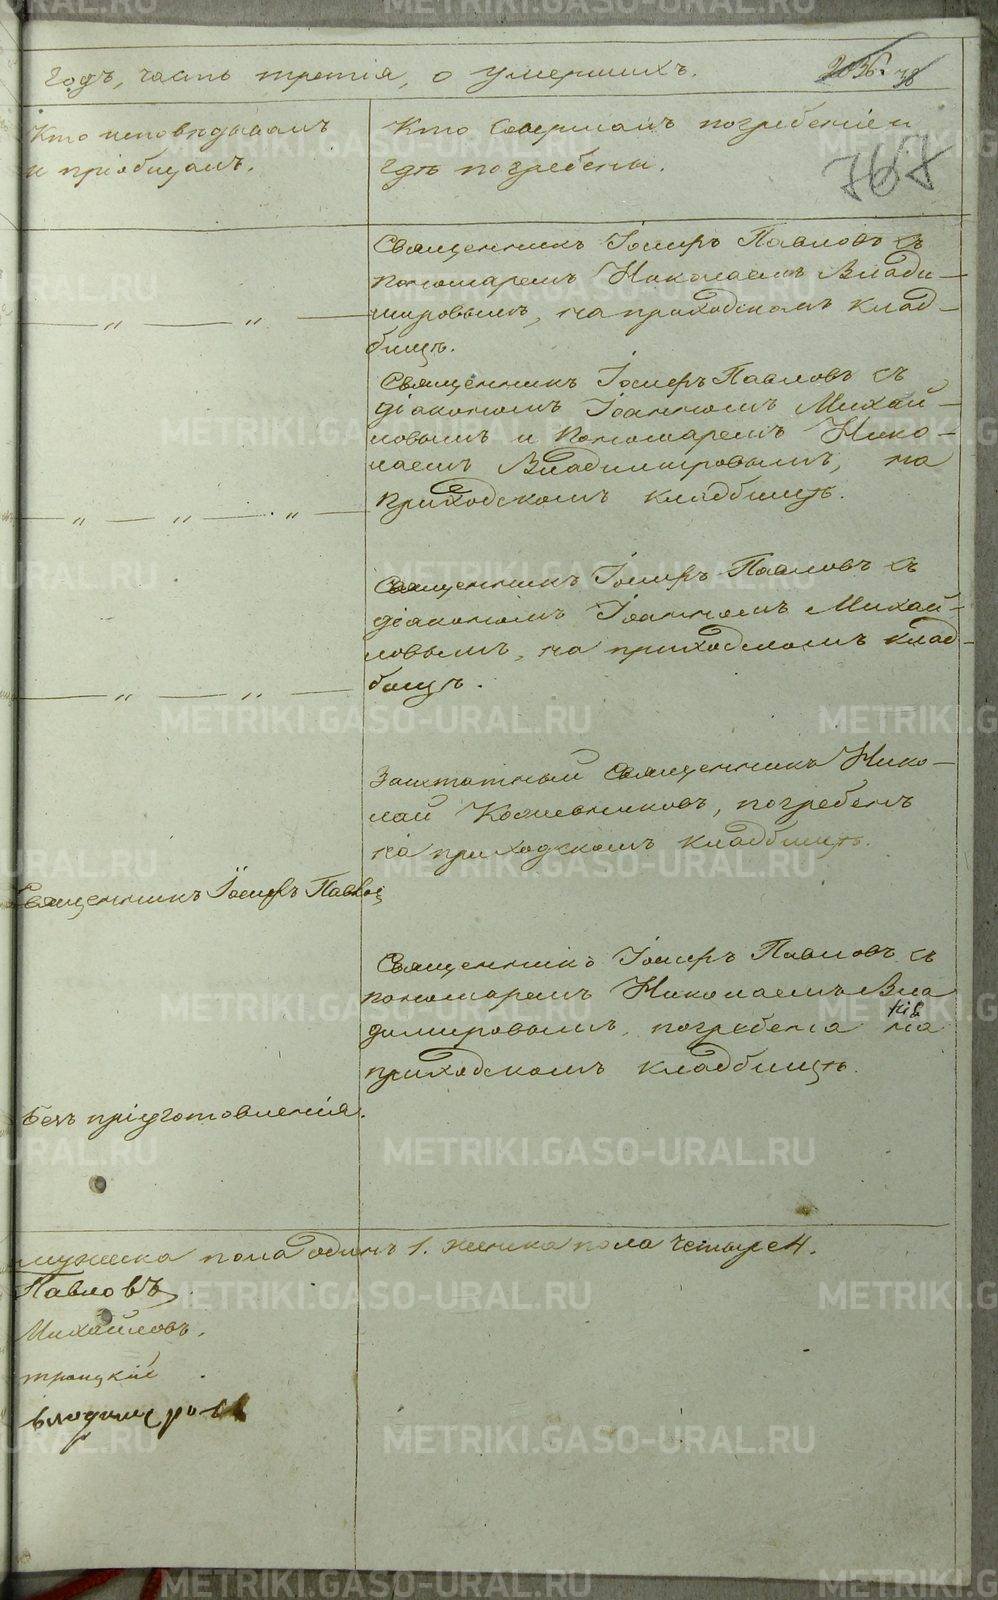 годъ, часть третія, о умершихъ.
Кто исповѣдывалъ
и пріобщалъ.
Кто совершалъ погребеніе и
гдѣ погребены.
768
Священникъ Іосифъ Павловъ съ
пономаремъ Николаемъ Влади-
мировымъ, на приходскомъ клад-
бищѣ.
— " — " —
Священникъ Іосифъ Павловъ съ
діакономъ Іоанномъ Михай-
ловымъ и Пономаремъ Нико-
лаемъ Владимировымъ, на
приходскомъ кладбищѣ.
— " — " — " —
Священникъ Іосифъ Павловъ съ
діакономъ Іоанномъ Михай-
ловымъ, на приходскомъ клад-
бищѣ.
— " — " —
Заштатный священникъ Нико-
лай Кожевниковъ, погребенъ
на приходскомъ кладбищѣ.
Священникъ Іосифъ Павловъ
Священникъ Іосифъ Павловъ съ
пономаремъ Николаемъ Вла
димировымъ, погребена на
приходскомъ кладбищѣ.
Безъ пріуготовленія.
мужеска пола одинъ 1. женска пола четыре 4.
Павловъ
Михайловъ.
троицкій
владимеровъ
METRIKI.GASO-URAL.RU